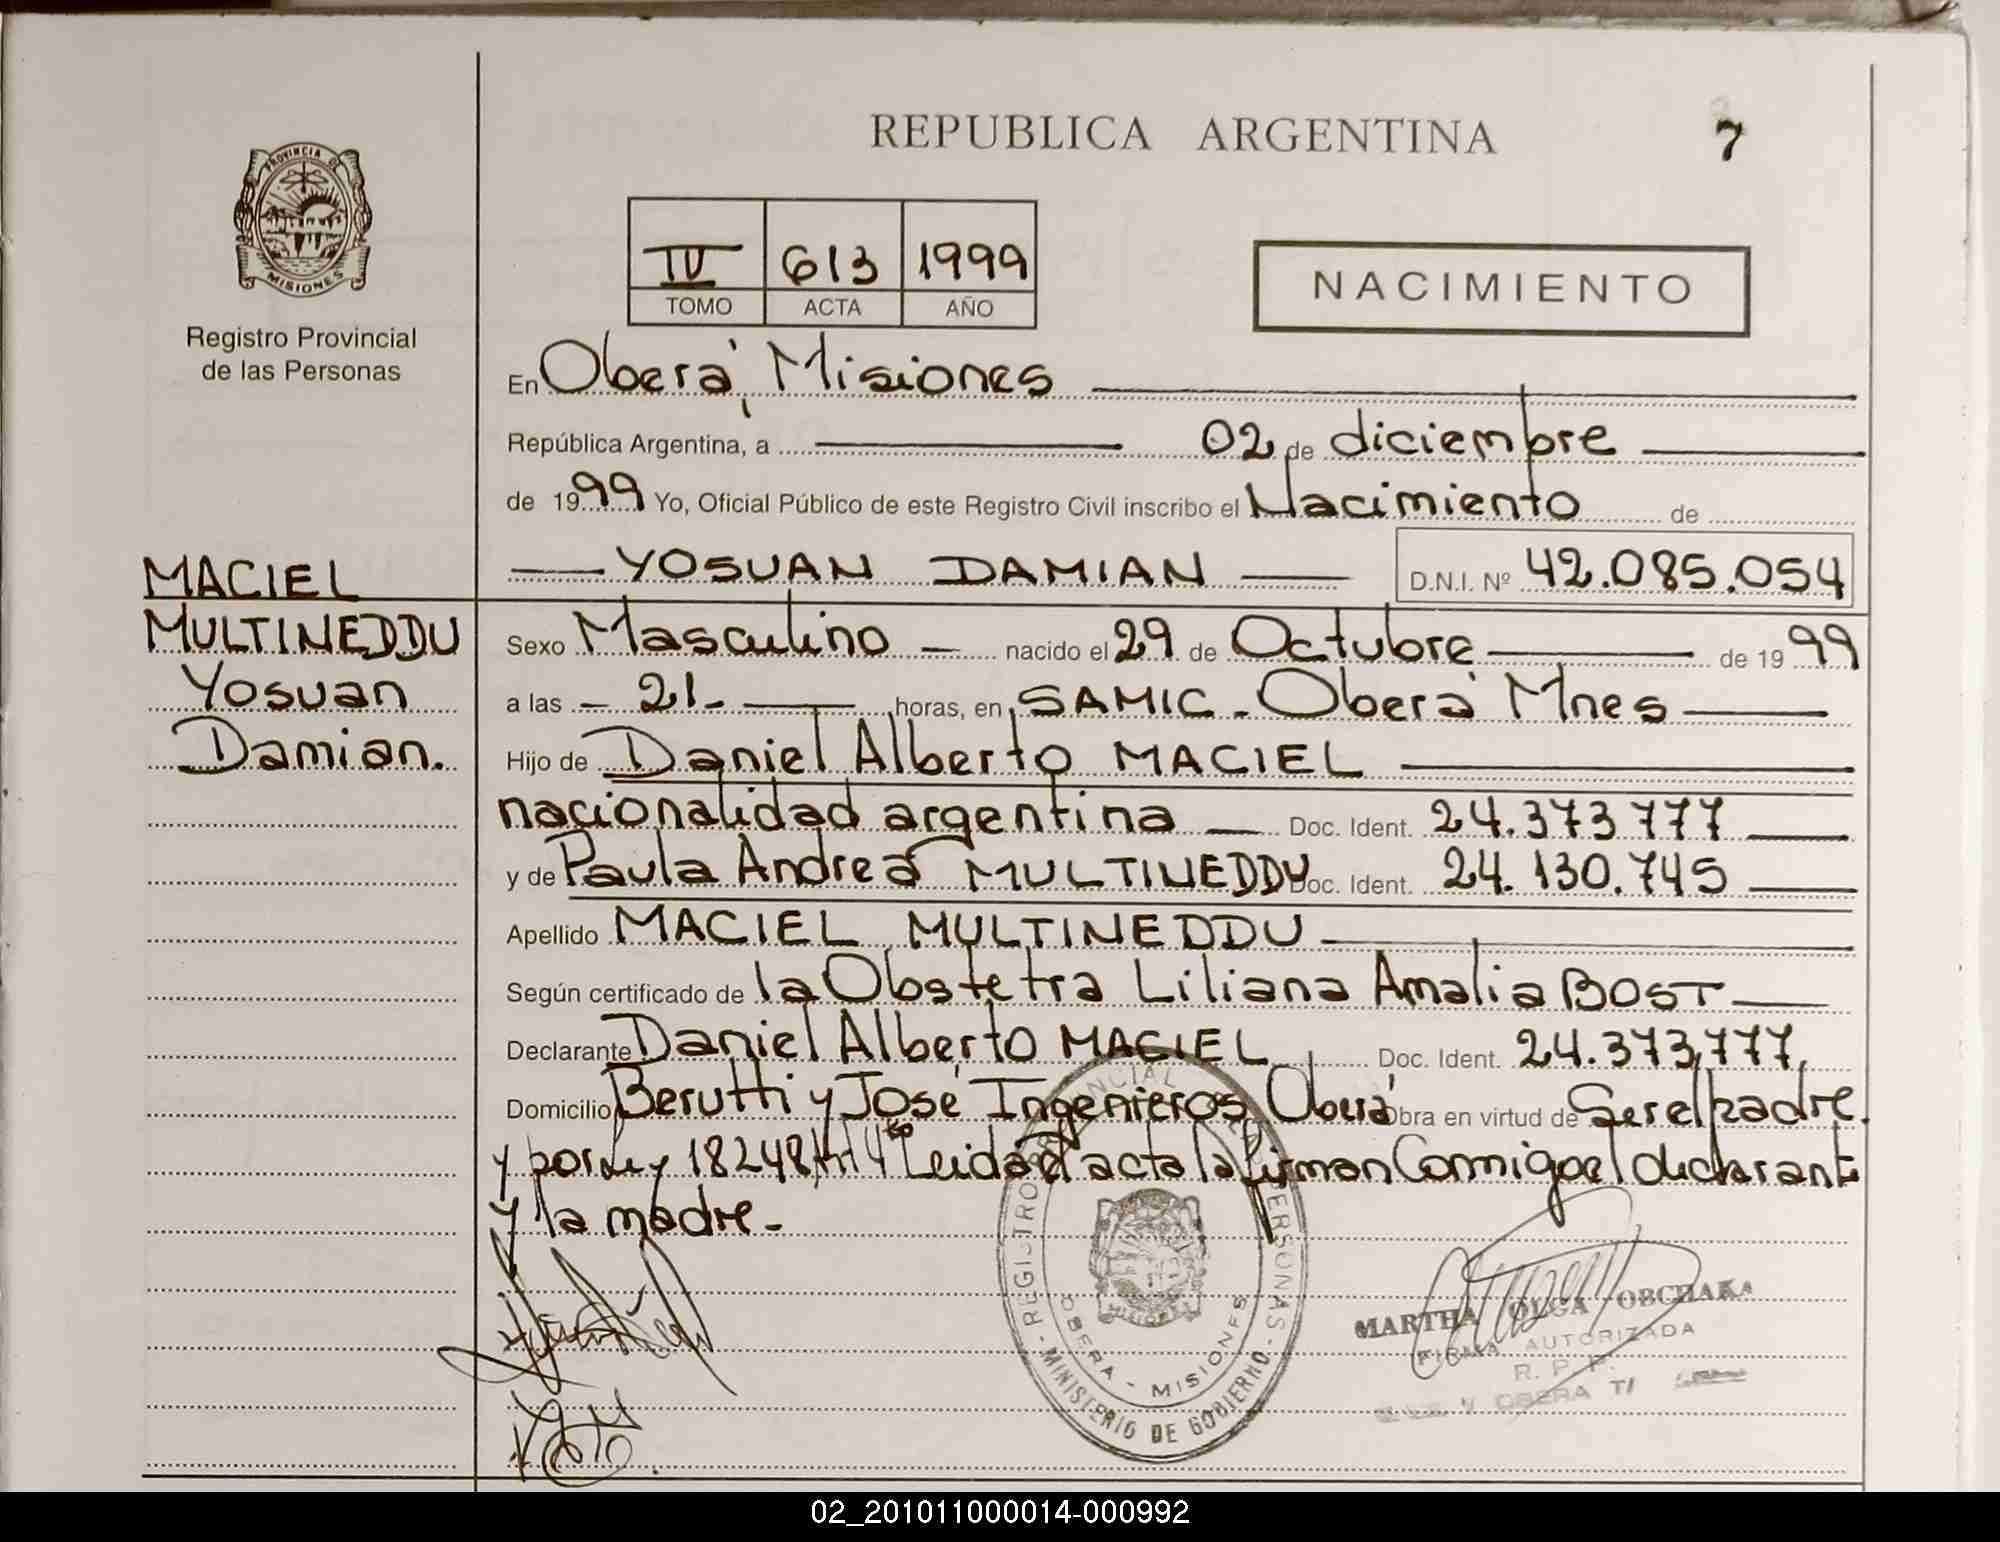 REPUBLICA ARGENTINA
7
PROVINCIA DE MISIONES
Registro Provincial
de las Personas
IV 613 1999
TOMO ACTA AÑO
NACIMIENTO
En Oberá, Misiones
República Argentina, a 02 de diciembre
de 1999 Yo, Oficial Público de este Registro Civil inscribo el Nacimiento de
YOSUAN DAMIAN D.N.I. Nº 42.085.054
MACIEL
MULTINEDDU
Yosuan
Damian.
Sexo Masculino nacido el 29 de Octubre de 1999
a las - 21 - horas, en SAMIC - Oberá Mnes
Hijo de Daniel Alberto MACIEL
nacionalidad argentina Doc. Ident. 24.373.777
y de Paula Andrea MULTINEDDU Doc. Ident. 24.130.745
Apellido MACIEL MULTINEDDU
Según certificado de la Obstetra Liliana Amalia BOST
Declarante Daniel Alberto MACIEL Doc. Ident. 24.373.777,
Domicilio Berutti y José Ingenieros Oberá Obra en virtud de Ser el padre
y por Ley 18248 Art 4to Leida el acta la firman Conmigo el declarante
y la madre.-
REGISTRO PROVINCIAL DE LAS PERSONAS
OBERA - MISIONES
MINISTERIO DE GOBIERNO
MARTHA OLGA OBCHAKA
FIRMA AUTORIZADA
R. P. P.
OBERA
02_201011000014-000992